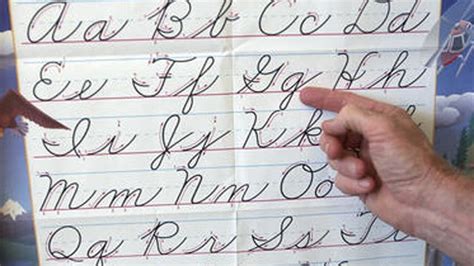 Aa Bb Cc Dd
Ee Ff Gg Hh
Ii Jj Kk
Mm Nn Oo
Qq Rr Ss Tt